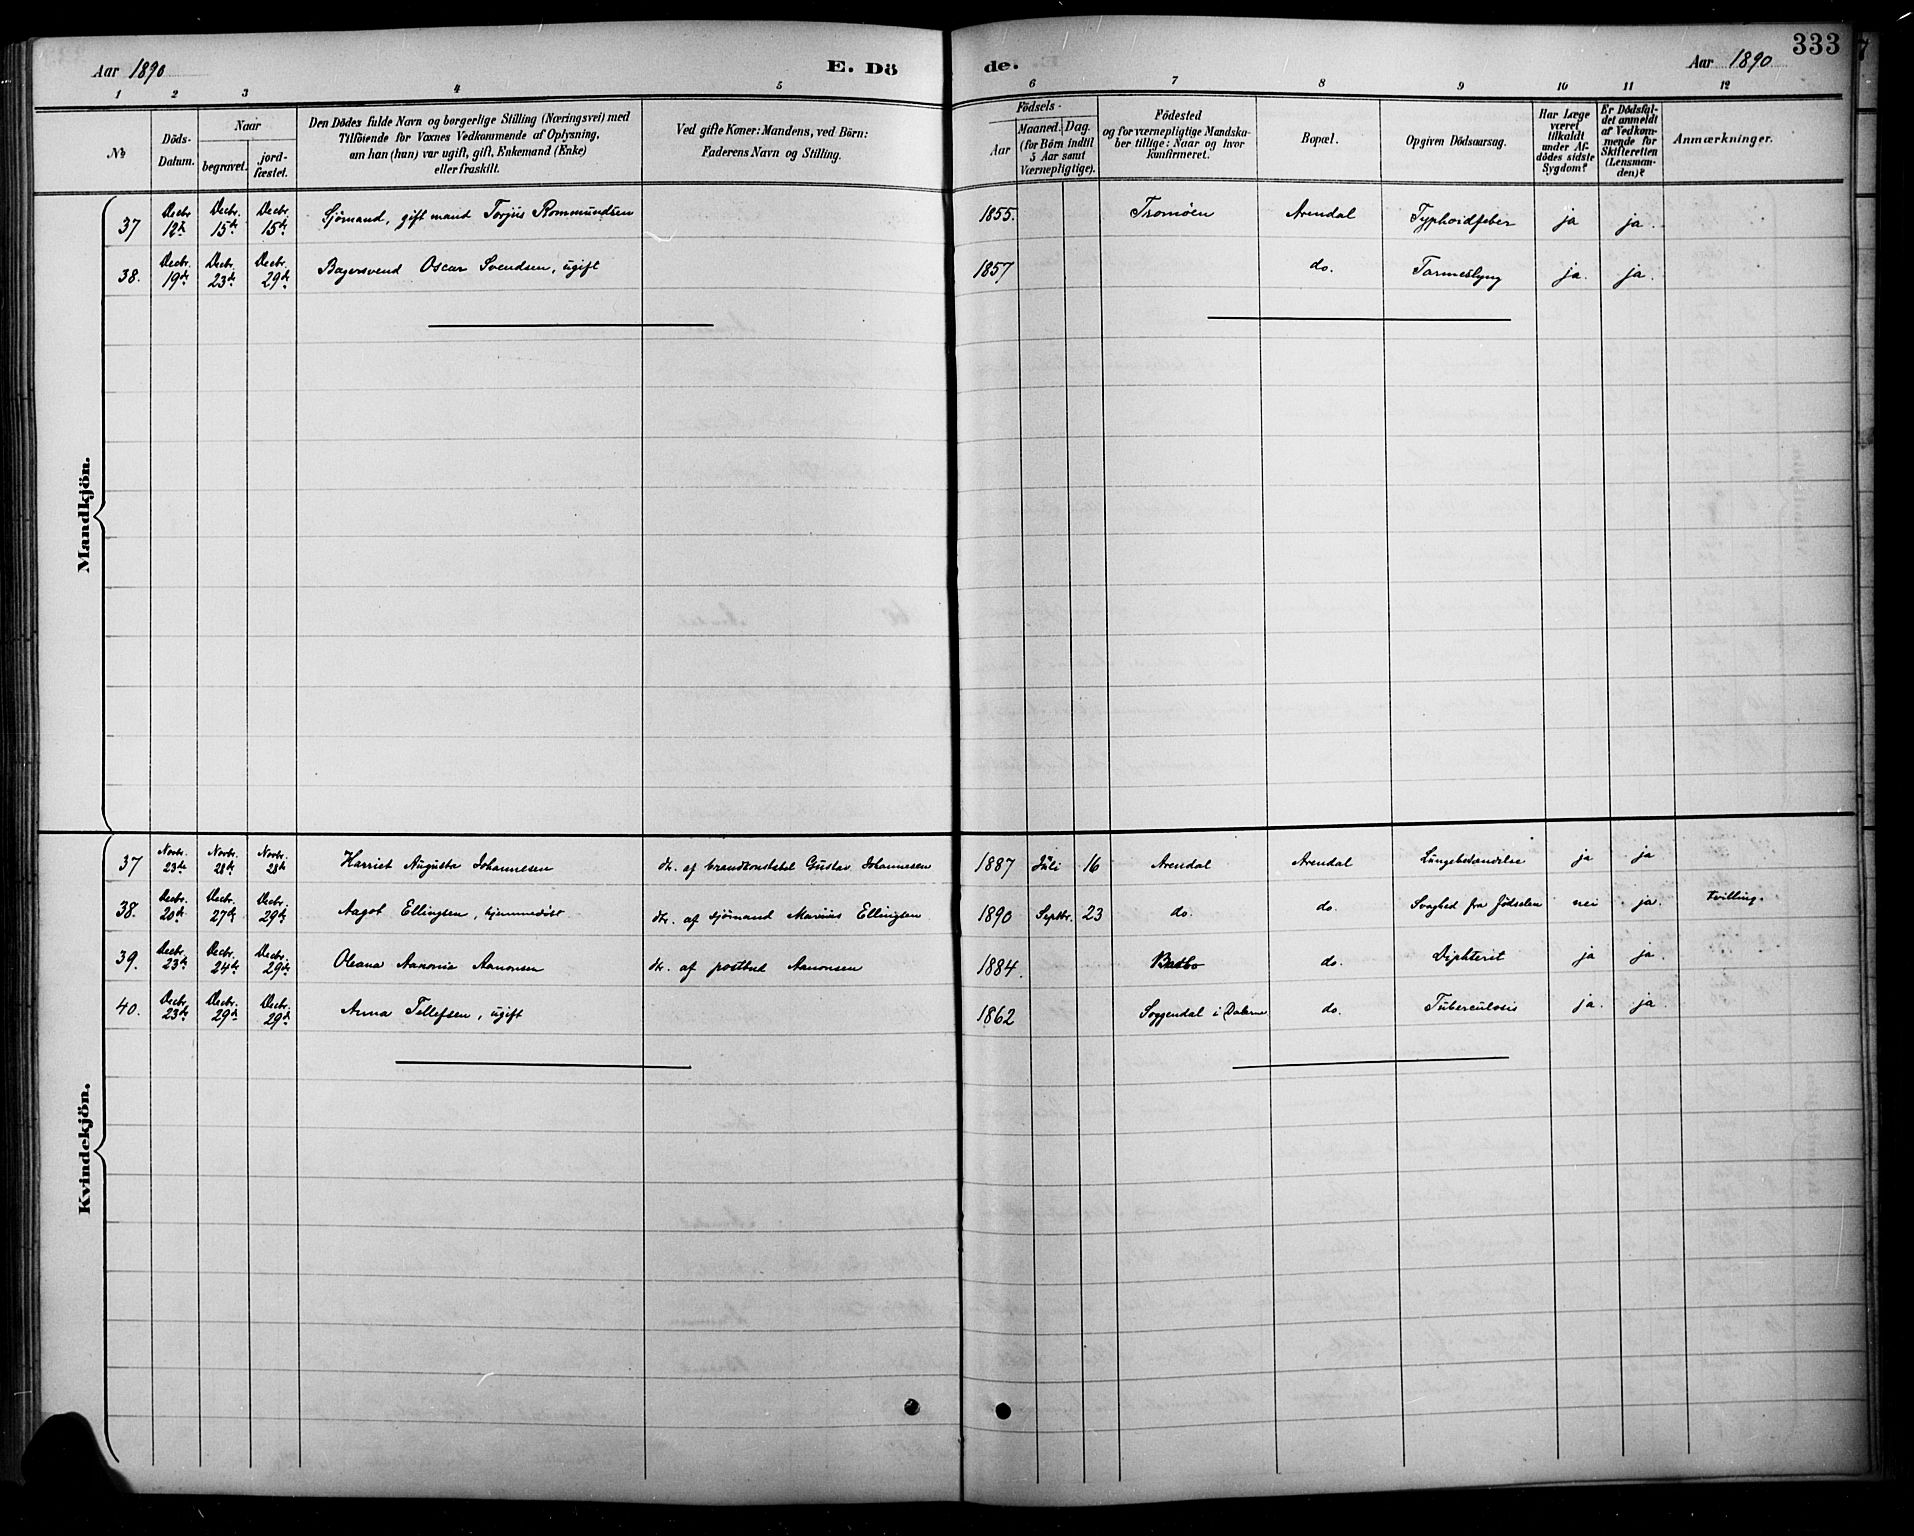 Aar 1890 E. Dö de. Aar 1890 333
1 2 3 4 5 6 7 8 9 10 11 12
№
Döds-
Datum.
Naar
begravet.
jord-
fæstet.
Den Dödes fulde Navn og borgerlige Stilling (Næringsvei) med
Tilföiende for Voxnes Vedkommende af Oplysning,
om han (hun) var ugift, gift, Enkemand (Enke)
eller fraskilt.
Ved gifte Koner: Mandens, ved Börn:
Faderens Navn og Stilling.
Födsels-
Aar
Maaned. Dag.
(for Börn indtil
5 Aar samt
Værnepligtige).
Födested
og for værnepligtige Mandska-
ber tillige: Naar og hvor
konfirmeret.
Bopæl.
Opgiven Dödsaarsag.
Har Læge
været
tilkaldt
under Af-
dödes sidste
Sygdom?
Er Dödsfal-
det anmeldt
af Vedkom-
mende for
Skifteretten
(Lensman-
den)?
Anmærkninger.
Mandkjön.
37 Decbr. 12te Decbr. 15de Decbr. 15de Sjömand, gift mand Torjus Rommundsen 1855. Tromöen Arendal Typhoidfeber ja ja.
38. Decbr. 19de Decbr. 23de Decbr. 29de Bagersvend Oscar Svendsen, ugift 1857 do. Tarmeslyng ja. ja.
Kvindekjön.
37 Novbr. 23de Novbr. 28de Novbr. 28de Harriet Augusta Johannesen dtr. af brandkonstabel Gustav Johannesen 1887 Juli 16 Arendal Arendal Lungebetændelse ja ja
38. Decbr. 20de Decbr. 27de Decbr. 29de Aagot Ellingsen, hjemmedöbt dtr. af sjömand Marius Ellingsen 1890 Septbr. 23 do. do. Svaghed fra Födselen nei ja. tvilling.
39. Decbr. 23de Decbr. 24de Decbr. 29de Oleana Aanonia Aanonsen dtr. af postbud Aanonsen 1884. Barbo do. Diphterit ja ja.
40. Decbr. 23de Decbr. 29de Decbr. 29de Anna Tellefsen, ugift 1862 Soggendal i Dalerne do. Tuberculosis ja. ja.